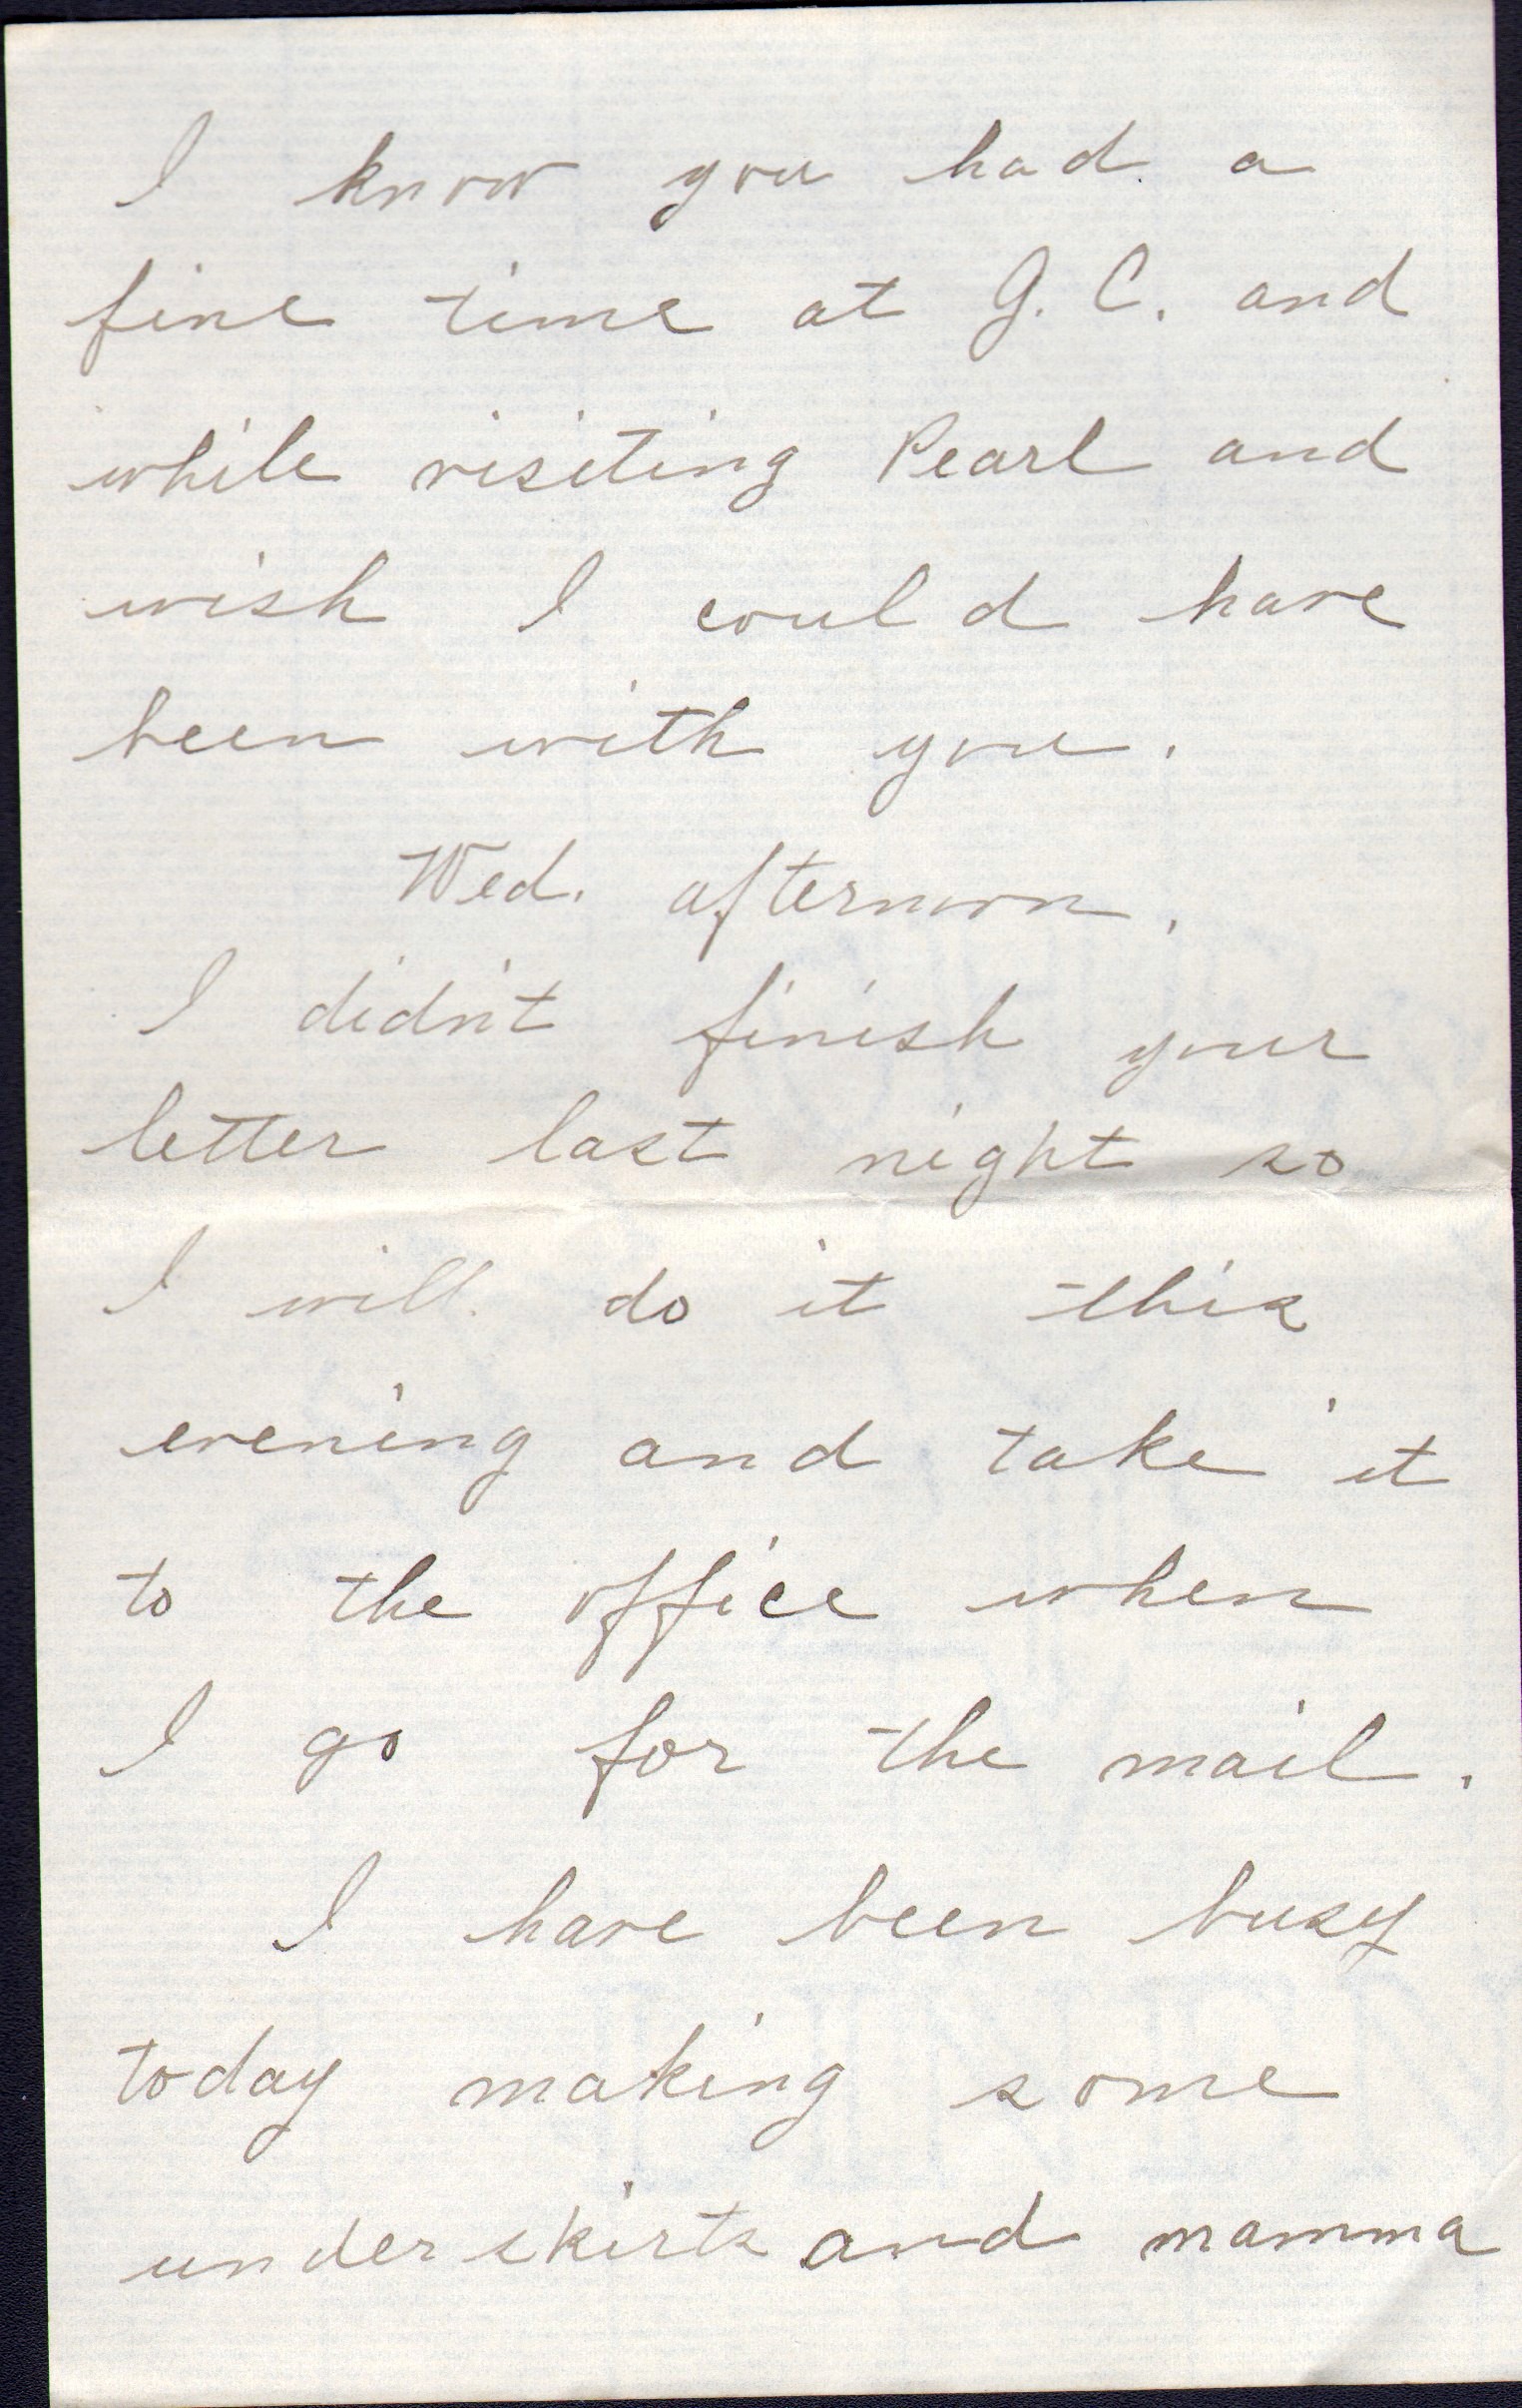 I know you had a
fine time at G. C. and
while visiting Pearl and
wish I could have
been with you.
Wed. afternoon.
I didn't finish your
letter last night so
I will do it this
evening and take it
to the office when
I go for the mail.
I have been busy
today making some
underskirts and mamma